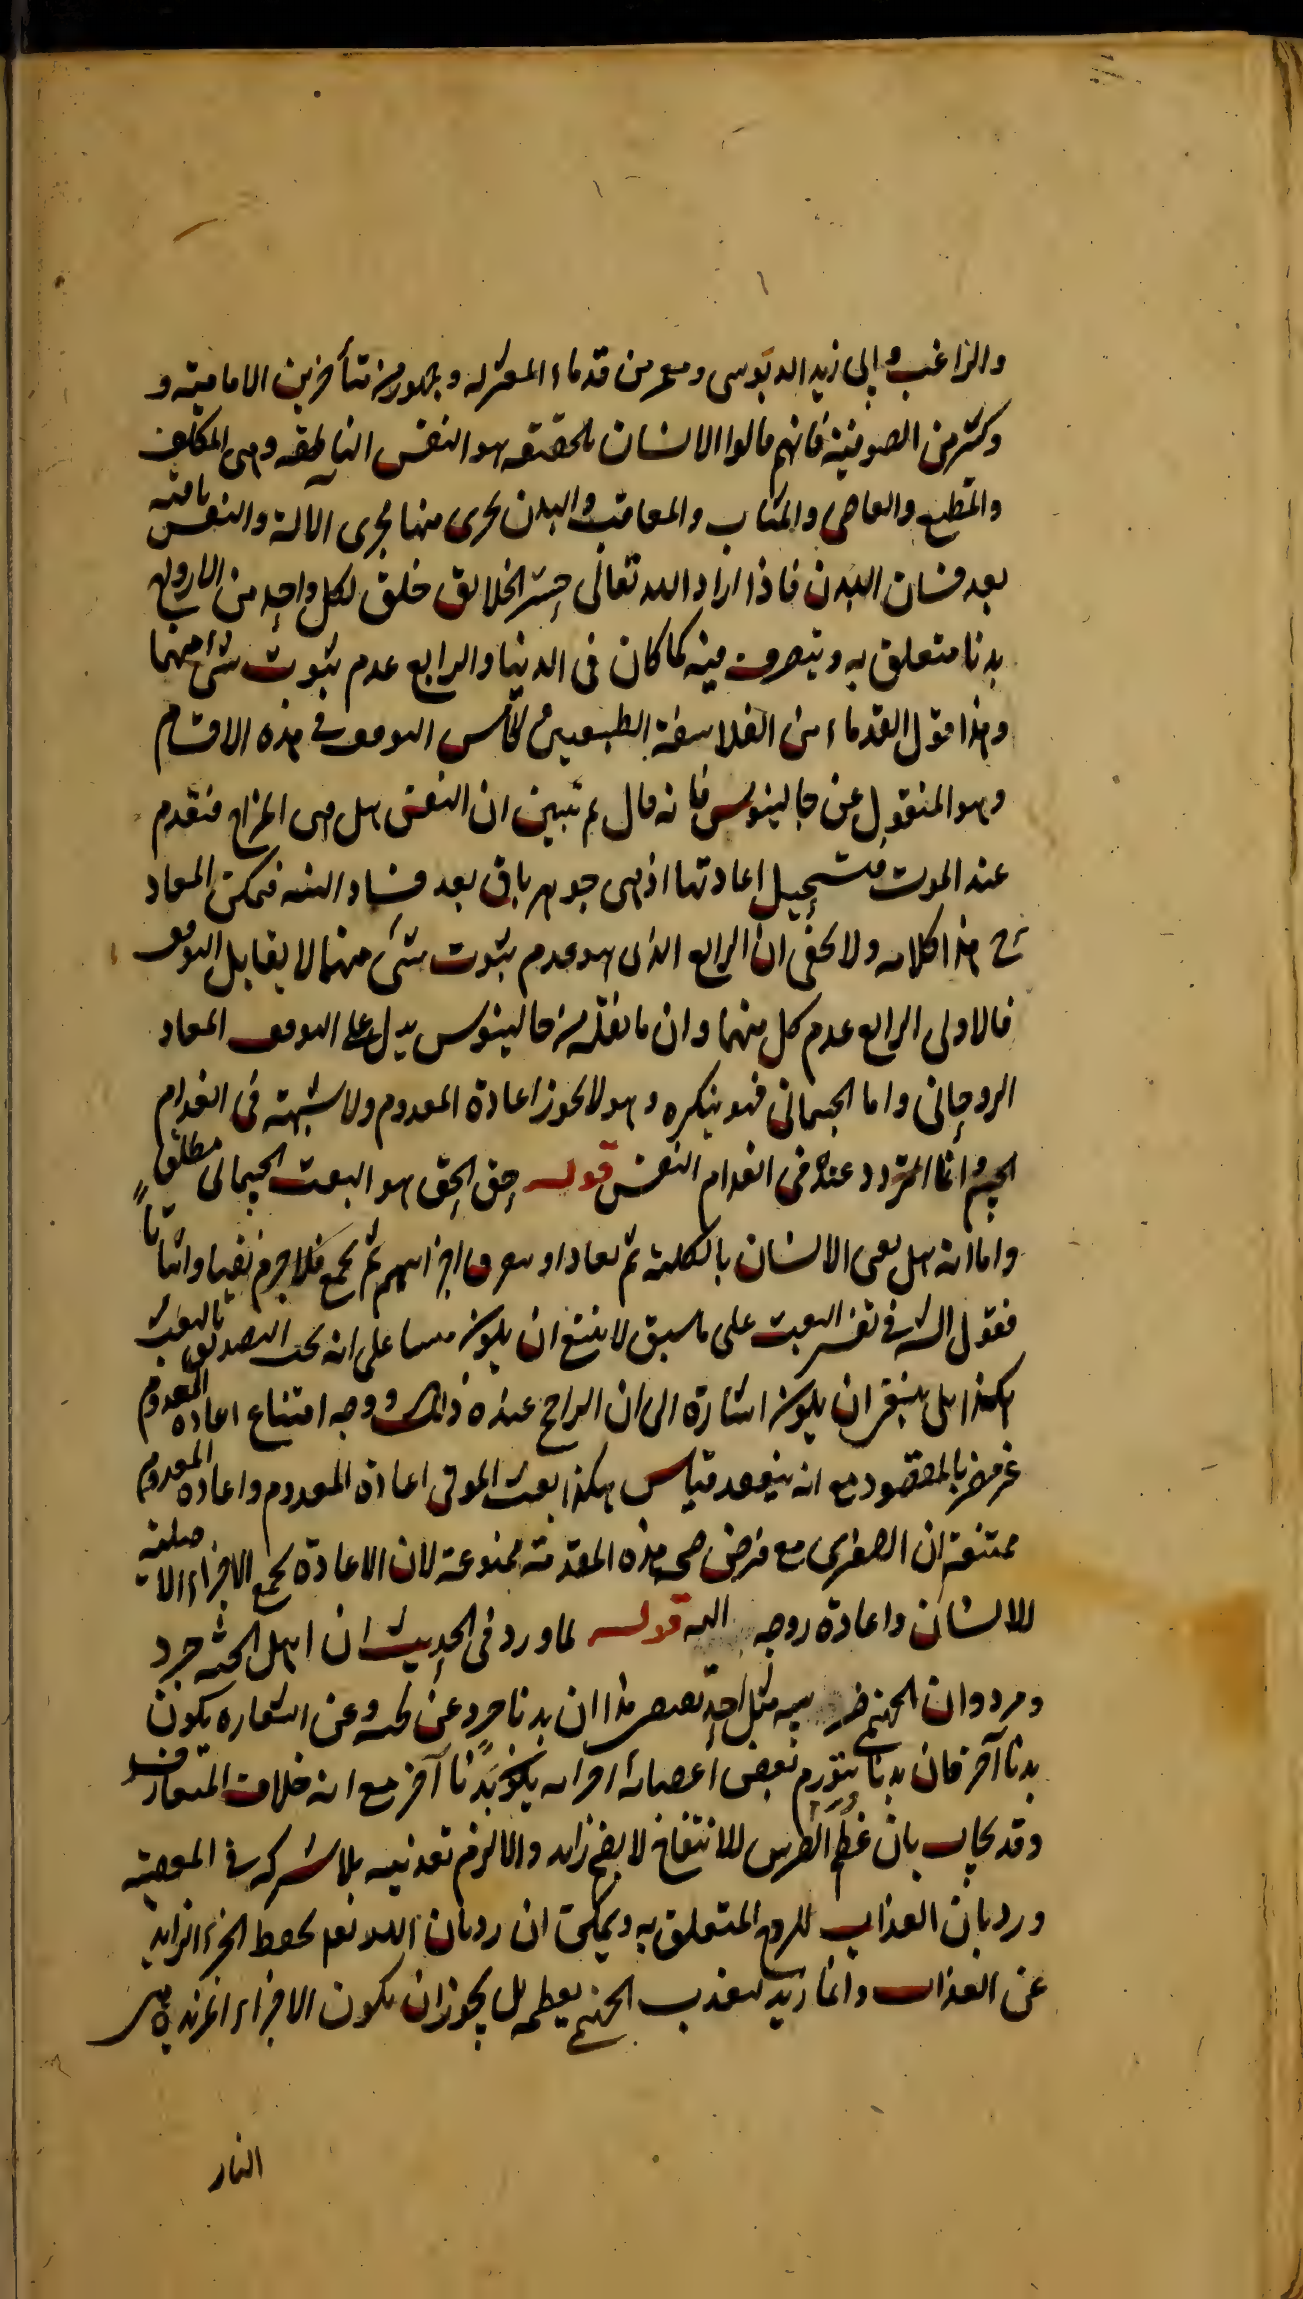 والراغب وابى زيد الدبوسى ومعمر من قدماء المعتزله وجمهور من متأخرين الامامية و
وكثير من الصوفية فانهم قالوا الانسان بالحقيقه هو النفس الناطقه وهى المكلف
والمطيع والعاصى والمثاب والمعاقب والبدن يجرى منها مجرى الآلة والنفس باقيه
بعد فساد البدن فاذا اراد الله تعالى حشر الخلايق خلق لكل واحد من الارواح
بدنا متعلق به ويتصرف فيه كما كان فى الدنيا والرابع عدم ثبوت شئ منهما
وهذا قول القدماء من الفلاسفة الطبيعيين والخامس التوقف فى هذه الاقسام
وهو المنقول عن جالينوس فانه قال لم يتبين ان النفس هل هى المزاج فتقدم
عند الموت فيستحيل اعادتها اذ هى جوهر باق بعد فساد البنيه فيمكن المعاد
ح هذا كلامه ولا يخفى ان الرابع الذى هو عدم ثبوت شئ منهما لا يقابل التوقف
فالاولى الرابع عدم كل منهما وان ما نقله من جالينوس يدل على التوقف المعاد
الروحانى واما الجسمانى فهو ينكره وهو لا يجوز اعادة المعدوم ولا شبهة فى انعدام
الجسم وانما التردد عنده فى انعدام النفس قوله حق الحق هو البعث الجسمانى مطلقا
واما انه هل يفنى الانسان بالكلية ثم يعاد او يتفرق اجزائهم ثم يجمع فلا جزم نفيا واثباتاً
فقول الش فى تفسير البعث على ما سبق لا ينبغ ان يكون مبنيا على انه يجب التصديق بالبعث
هكذا بل ينبغى ان يكون اشارة الى ان الراجح عنده ذلك ووجه امتناع اعاده المعدوم
غير مضر بالمقصود مع انه ينعقد قياس هكذا بعث الموتى اعادة المعدوم واعاده المعدوم
ممتنعة ان الصغرى مع فرض صحه هذه المقدمة ممنوعة لان الاعادة يجمع الاجزاء الاصلية
للانسان واعادة روحه اليه قوله لما ورد فى الحديث ان اهل الجنه جرد
ومرد وان الجهنمى ضرسه مثل احد
بدنا آخر فان بدنا يتورم بعض اعضائه يكون بدنا آخر مع انه خلاف المتعارف
وقد يجاب بان عظم الضرس للانتفاخ لا بضم زايد والا لزم تعذيبه بلا شركه فى المعصية
ورد بان العذاب للروح المتعلق به ويمكن ان رد بان الله تعم يحفظ الجزء الزايد
عن العذاب وانما زيد ليعذب الجهنمى بعظمه بل يجوز ان يكون الاجزاء المزيده من
النار